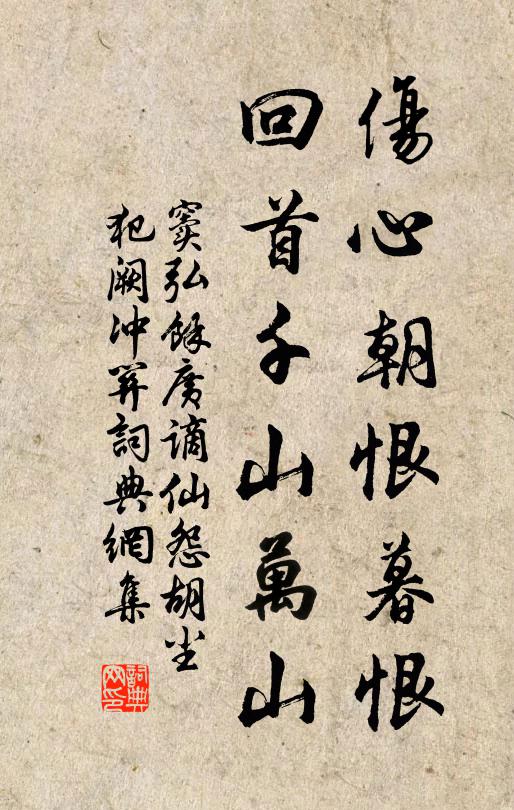 傷心朝恨暮恨
回首千山萬山
竇弘餘廣謫仙怨胡塵
犯闕沖關詞典網集
詞典
网印